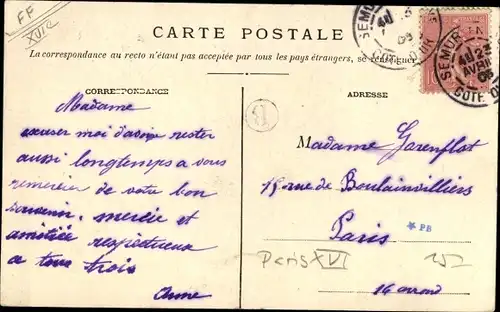 FF
XVIe
CARTE POSTALE
La correspondance au recto n'étant pas acceptée par tous les pays étrangers, se renseigner
CORRESPONDANCE
ADRESSE
SEMUR EN
COTE D'OR
AVRIL
B
Madame
excuser moi d'avoir rester
aussi longtemps a vous
remercier de votre bon
souvenir. merci et
amitiée respectueux
a tous trois
Anne
Madame Garenflot
15 rue de Boulainvilliers
Paris
*PB
Paris XVI
16 arrond